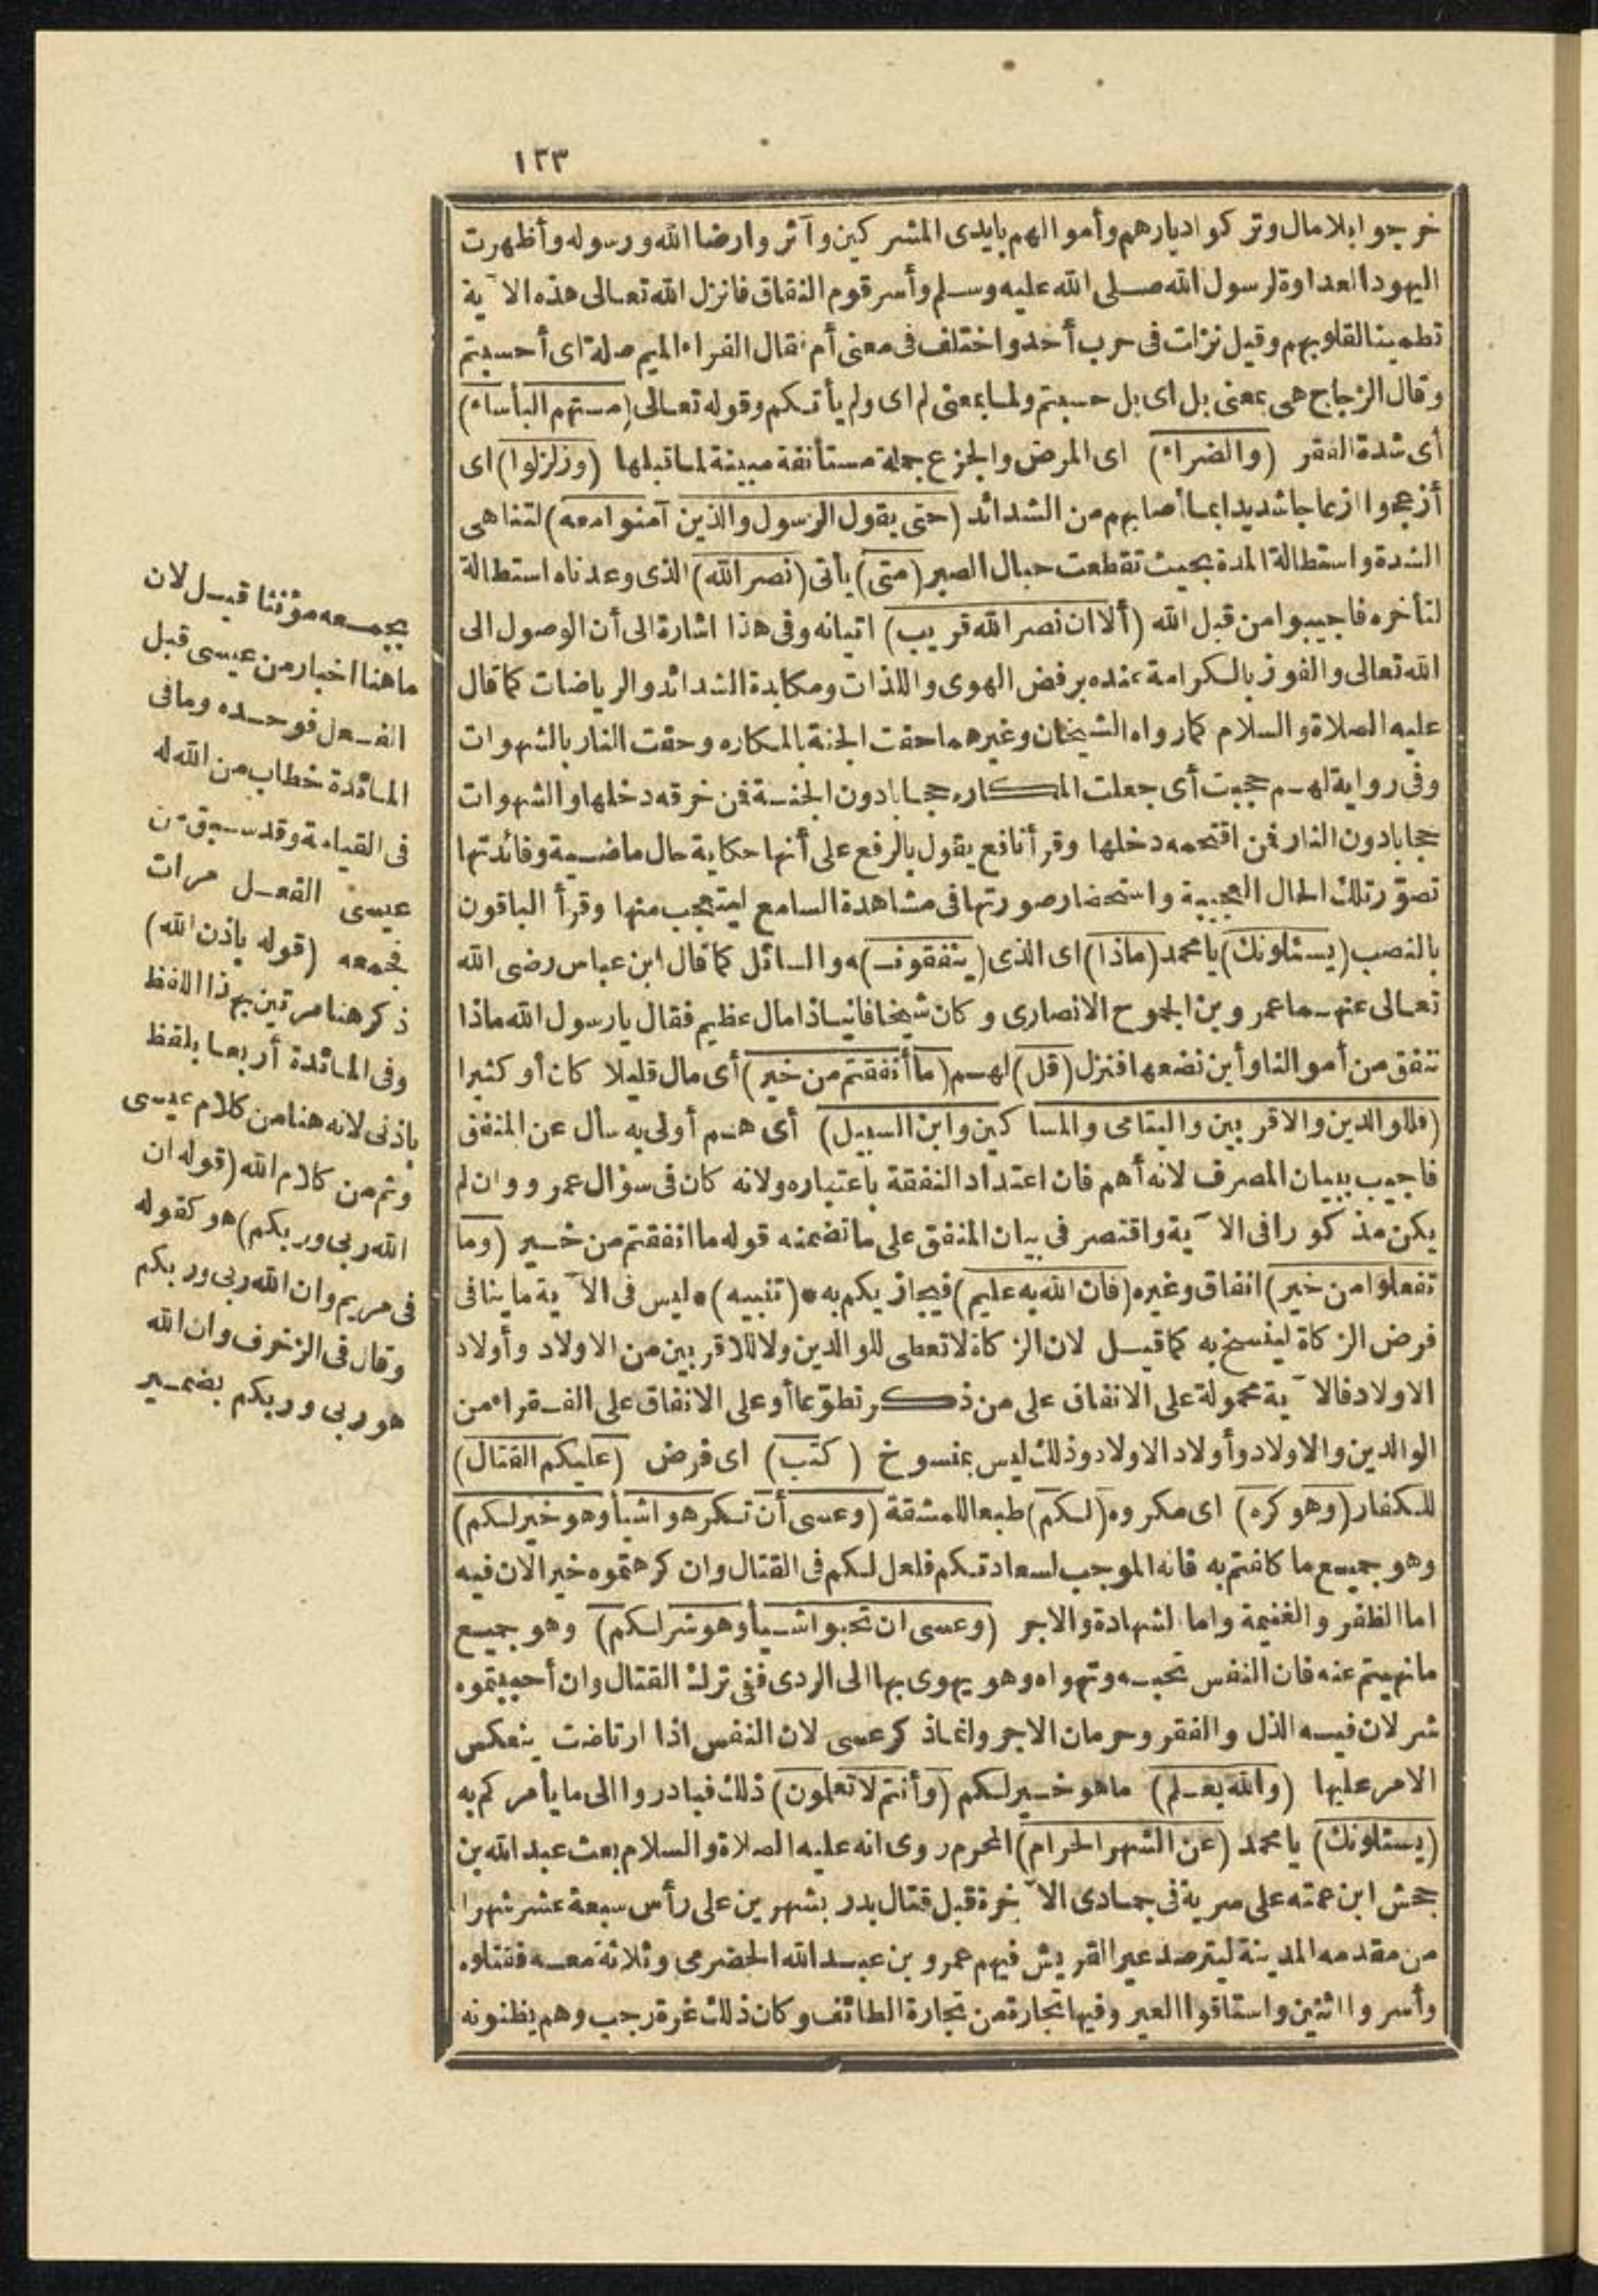 ١٣٣
خرجوا بلامال وتركوا ديارهم وأموالهم بايدى المشركين وآثروا رضا الله ورسوله وأظهرت
اليهود العداوة لرسول الله صلى الله عليه وسلم وأسر قوم النفاق فانزل الله تعالى هذه الآية
تطمينا لقلوبهم وقيل نزلت فى حرب أحد واختلف فى معنى أم فقال الفراء الميم صلة اى أحسبتم
وقال الزجاج هى بمعنى بل اى بل حسبتم ولما بمعنى لم اى ولم يأتكم وقوله تعالى (مستهم البأساء)
أى شدة الفقر (والضراء) اى المرض والجزع جملة مستأنفة مبينة لما قبلها (وزلزلوا) اى
أزعجوا ازعاجا شديدا بما أصابهم من الشدائد (حتى يقول الرسول والذين آمنوا معه) لتناهى
الشدة واستطالة المدة بحيث تقطعت حبال الصبر (متى) يأتى (نصر الله) الذى وعدناه استطالة
لتأخره فاجيبوا من قبل الله (ألا ان نصر الله قريب) اتيانه وفى هذا اشارة الى أن الوصول الى
الله تعالى والفوز بالكرامة عنده برفض الهوى واللذات ومكابدة الشدائد والرياضات كما قال
عليه الصلاة والسلام كما رواه الشيخان وغيرهما حفت الجنة بالمكاره وحفت النار بالشهوات
وفى رواية لهم حجبت أى جعلت المكاره حجابا دون الجنة فمن خرقه دخلها والشهوات
حجابا دون النار فمن اقتحمه دخلها وقرأ نافع يقول بالرفع على أنها حكاية حال ماضية وفائدتها
تصوّر تلك الحال العجيبة واستحضار صورتها فى مشاهدة السامع ليتعجب منها وقرأ الباقون
بالنصب (يسئلونك) يا محمد (ماذا) اى الذى (ينفقون) ه والسائل كما قال ابن عباس رضى الله
تعالى عنهما عمرو بن الجموح الانصارى وكان شيخا فانيا ذا مال عظيم فقال يا رسول الله ماذا
ننفق من أموالنا وأين نضعها فنزل (قل) لهم (ما أنفقتم من خير) أى مال قليلا كان أو كثيرا
(فللوالدين والاقربين واليتامى والمساكين وابن السبيل) أى هم أولى به سأل عن المنفق
فاجيب ببيان المصرف لانه أهم فان اعتداد النفقة باعتباره ولانه كان فى سؤال عمرو وان لم
يكن مذكورا فى الآية واقتصر فى بيان المنفق على ما تضمنه قوله ما انفقتم من خير (وما
تفعلوا من خير) انفاق وغيره (فان الله به عليم) فيجازيكم به * (تنبيه) * ليس فى الآية ما ينافى
فرض الزكاة لينسخ به كما قيل لان الزكاة لا تعطى للوالدين ولا للاقربين من الاولاد وأولاد
الاولاد فالآية محمولة على الانفاق على من ذكر تطوّعا أو على الانفاق على الفقراء من
الوالدين والاولاد وأولاد الاولاد وذلك ليس بمنسوخ (كتب) اى فرض (عليكم القتال)
للكفار (وهو كره) اى مكروه (لكم) طبعا للمشقة (وعسى أن تكرهوا شيأ وهو خير لكم)
وهو جميع ما كلفتم به فانه الموجب لسعادتكم فلعل لكم فى القتال وان كرهتموه خيرا لان فيه
اما الظفر والغنيمة واما الشهادة والاجر (وعسى ان تحبوا شيأ وهو شر لكم) وهو جميع
ما نهيتم عنه فان النفس تحبه وتهواه وهو يهوى بها الى الردى ففى ترك القتال وان أحببتموه
شر لان فيه الذل والفقر وحرمان الاجر وانما ذكر عسى لان النفس اذا ارتاضت ينعكس
الامر عليها (والله يعلم) ما هو خير لكم (وأنتم لا تعلمون) ذلك فبادروا الى ما يأمركم به
(يسئلونك) يا محمد (عن الشهر الحرام) المحرم روى انه عليه الصلاة والسلام بعث عبد الله بن
جحش ابن عمته على سرية فى جمادى الآخرة قبل قتال بدر بشهرين على رأس سبعة عشر شهرا
من مقدمه المدينة ليترصد عير القريش فيهم عمرو بن عبد الله الحضرمى وثلاثة معه فقتلوه
وأسروا اثنين واستاقوا العير وفيها تجارة من تجارة الطائف وكان ذلك غرة رجب وهم يظنونه
بجمعه مؤنثا قيل لان
ما هنا اخبار من عيسى قبل
الفعل فوحده وما فى
المائدة خطاب من الله له
فى القيامة وقد سبق من
عيسى الفعل مرات
فجمعه (قوله باذن الله)
ذكر هنا مرتين بهذا اللفظ
وفى المائدة أربعا بلفظ
باذنى لانه هنا من كلام عيسى
وثم من كلام الله (قوله ان
الله ربى وربكم) هو كقوله
فى مريم وان الله ربى وربكم
وقال فى الزخرف وان الله
هو ربى وربكم بضمير